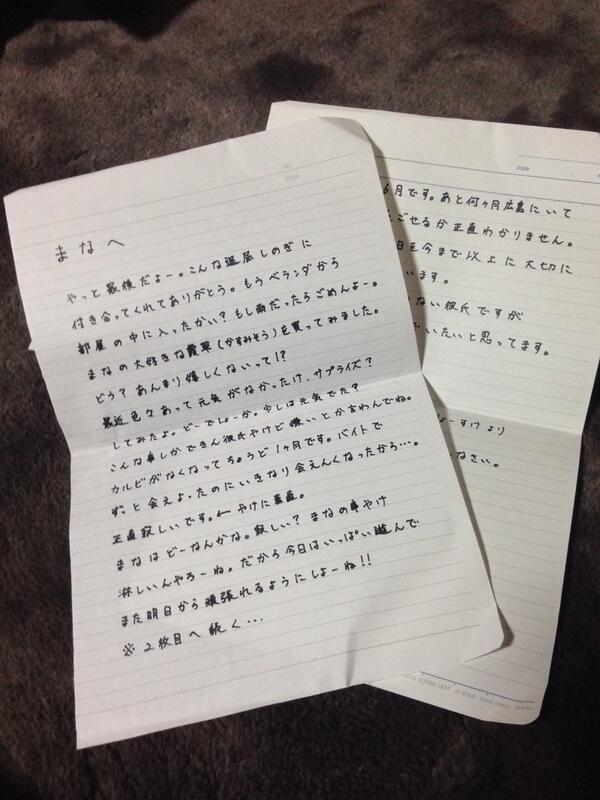 No.
Date
まなへ
やっと最後だよー。こんな退屈しのぎに
付き合ってくれてありがとう。もうベランダから
部屋の中に入ったかい？もし雨だったらごめんよー。
まなの大好きな霞草(かすみそう)を買ってみました。
どう？あんまり嬉しくないって!?
最近色々あって元気がなかったけ、サプライズ？
してみたよ。どーでしょーか。少しは元気でた？
こんな事しかできん彼氏やけど嫌いとか言わんでね。
カルビがなくなってちょうど1ヶ月です。バイトで
ずっと会えよったのにいきなり会えんくなったから…。
正直寂しいです。←やけに素直。
まなはどーなんかな。寂しい？まなの事やけ
淋しいんやろーね。だから今日はいっぱい遊んで
また明日から頑張れるようにしよーね!!
※2枚目へ続く…
Date
6月です。あと何ヶ月広島にいて
ごせるか正直わかりません。
日を今まで以上に大切に
います。
ない彼氏ですが
でいたいと思ってます。
しょーすけより
なさい。